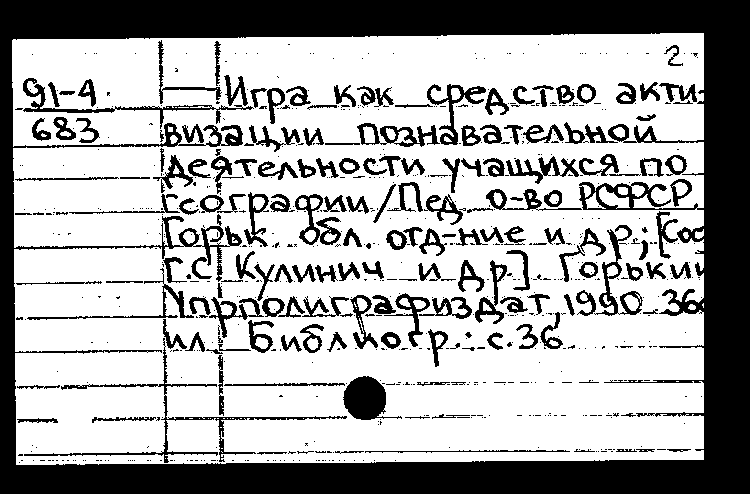 2
91-4
683
— Игра как средство акти-
визации познавательной
деятельности учащихся по
географии/Пед. о-во РСФСР.
Горьк. обл. отд-ние и др.; [Сос
Г.С. Кулинич и др.]. Горький
Упрполиграфиздат, 1990. 36с
ил. Библиогр.: с.36.